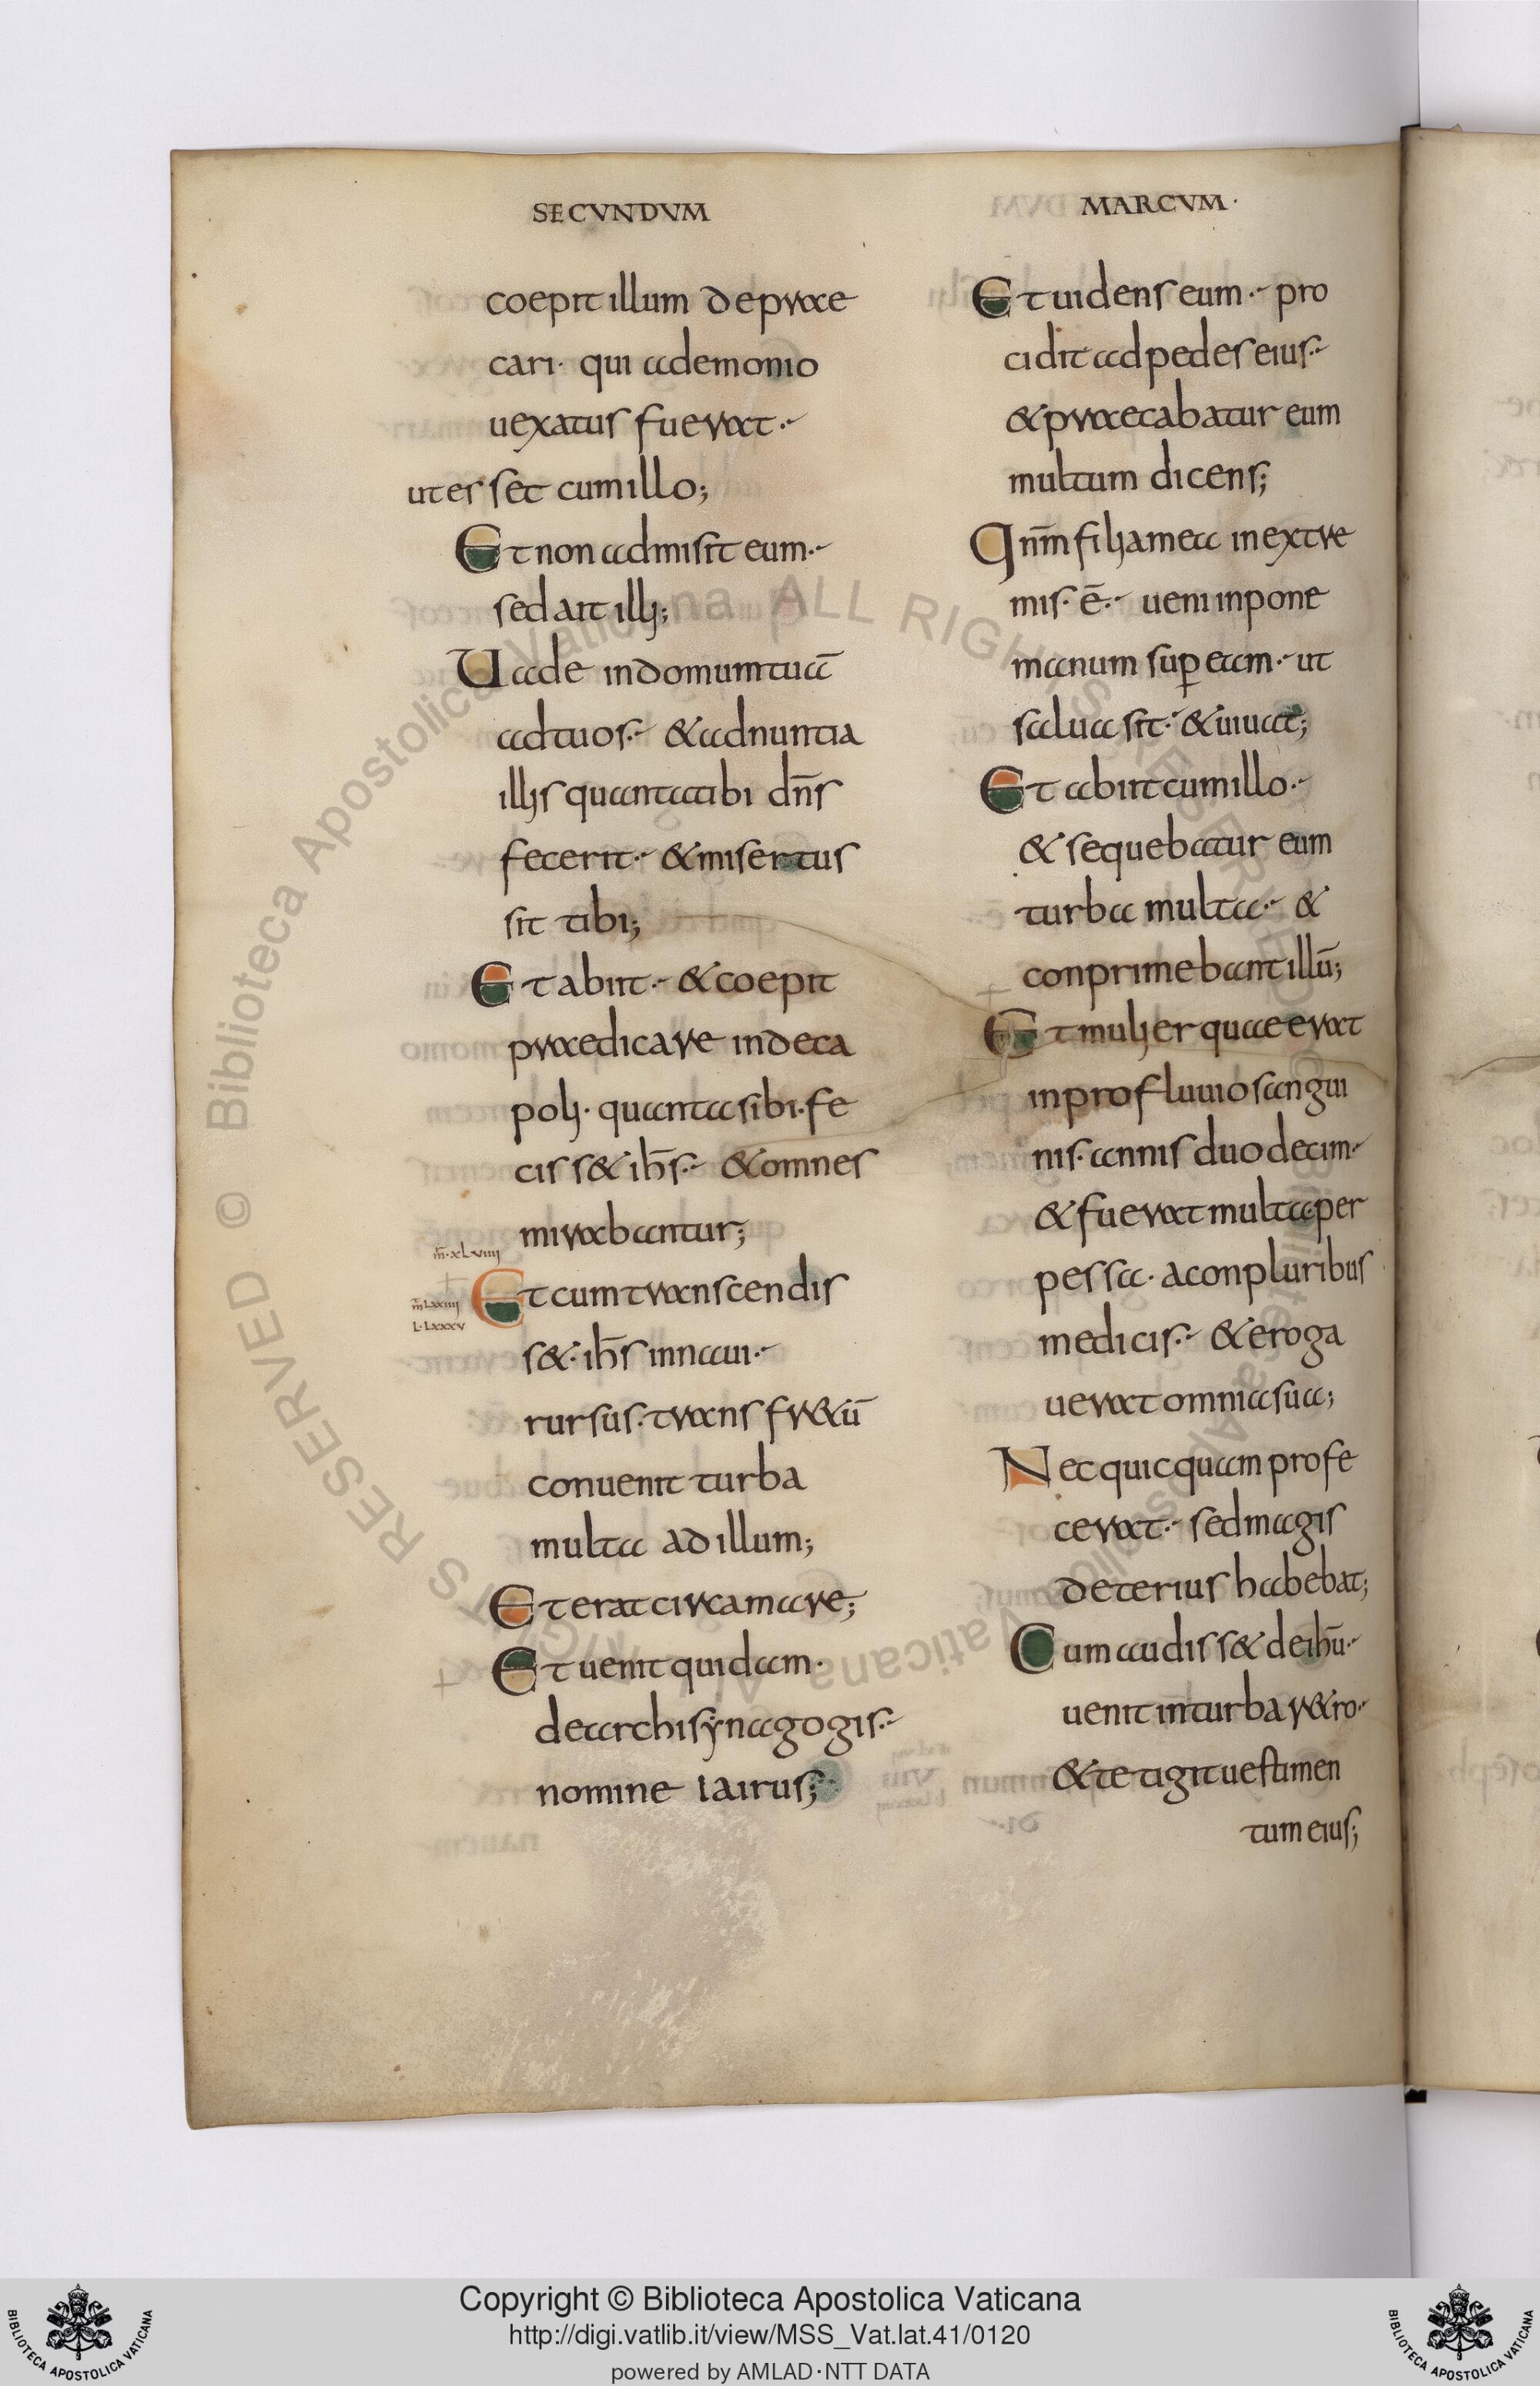 SECVNDVM
coepit illum depraece
cari· qui ademonio
uexatus fuerat·
ut esset cum illo;
Et non admisit eum·
sed ait illi;
Uade in domum tuā
ad tuos· & adnuntia
illis quanta tibi dn̄s
fecerit· & misertus
sit tibi;
Et abiit· & coepit
praedicare in deca
poli· quanta sibi· fe
ciss& ih̄s· & omnes
mirabantur;
m̄·xLviiii
m̄ Lxxiiii
L·Lxxxv
Et cum transcendis
s&· ih̄s in naui·
rursus· trans fr&ū
conuenit turba
multa ad illum;
Et erat circa mare;
Et uenit quidam·
de archisynagogis·
nomine iairus;
MARCVM·
Et uidens eum· pro
cidit ad pedes eius·
& praecabatur eum
multum dicens;
Qnm̄ filia mea in extre
mis· ē· ueni inpone
manum sup eam· ut
salua sit· & uiuat;
Et abiit cum illo·
& sequebatur eum
turba multa· &
conprimebant illū;
Et mulier quae erat
in profluuio sangui
nis· annis duodecim·
& fuerat multa per
pessa· a conpluribus
medicis· & eroga
uerat omnia sua;
Nec quicquam profe
cerat· sed magis
deterius habebat;
Cum audiss& de ih̄u·
uenit in turba r&ro·
& tetigit uestimen
tum eius;
© Biblioteca Apostolica Vaticana ALL RIGHTS RESERVED
Copyright © Biblioteca Apostolica Vaticana
http://digi.vatlib.it/view/MSS_Vat.lat.41/0120
powered by AMLAD·NTT DATA
BIBLIOTECA APOSTOLICA VATICANA
BIBLIOTECA APOSTOLICA VATICANA